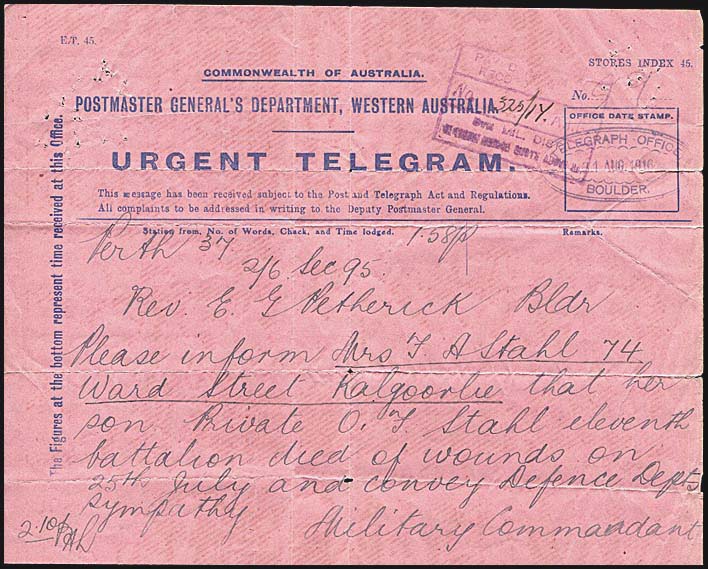 E.T. 45.
STORES INDEX 45.
COMMONWEALTH OF AUSTRALIA.
POSTMASTER GENERAL'S DEPARTMENT, WESTERN AUSTRALIA.
No. 99
325/17
URGENT TELEGRAM.
OFFICE DATE STAMP.
TELEGRAPH OFFICE
1 AUG. 1916
BOULDER.
This message has been received subject to the Post and Telegraph Act and Regulations.
All complaints to be addressed in writing to the Deputy Postmaster General.
Station from, No. of Words, Check, and Time lodged.
Remarks.
The Figures at the bottom represent time received at this Office.
Perth 37 1.58p
2/6 Sec 95
Rev. E. G Petherick Bldr
Please inform Mrs F. A Stahl 74
Ward Street Kalgoorlie that her
son Private O. F Stahl eleventh
battalion died of wounds on
25th July and convey Defence Depts
sympathy
Military Commandant
2.10p